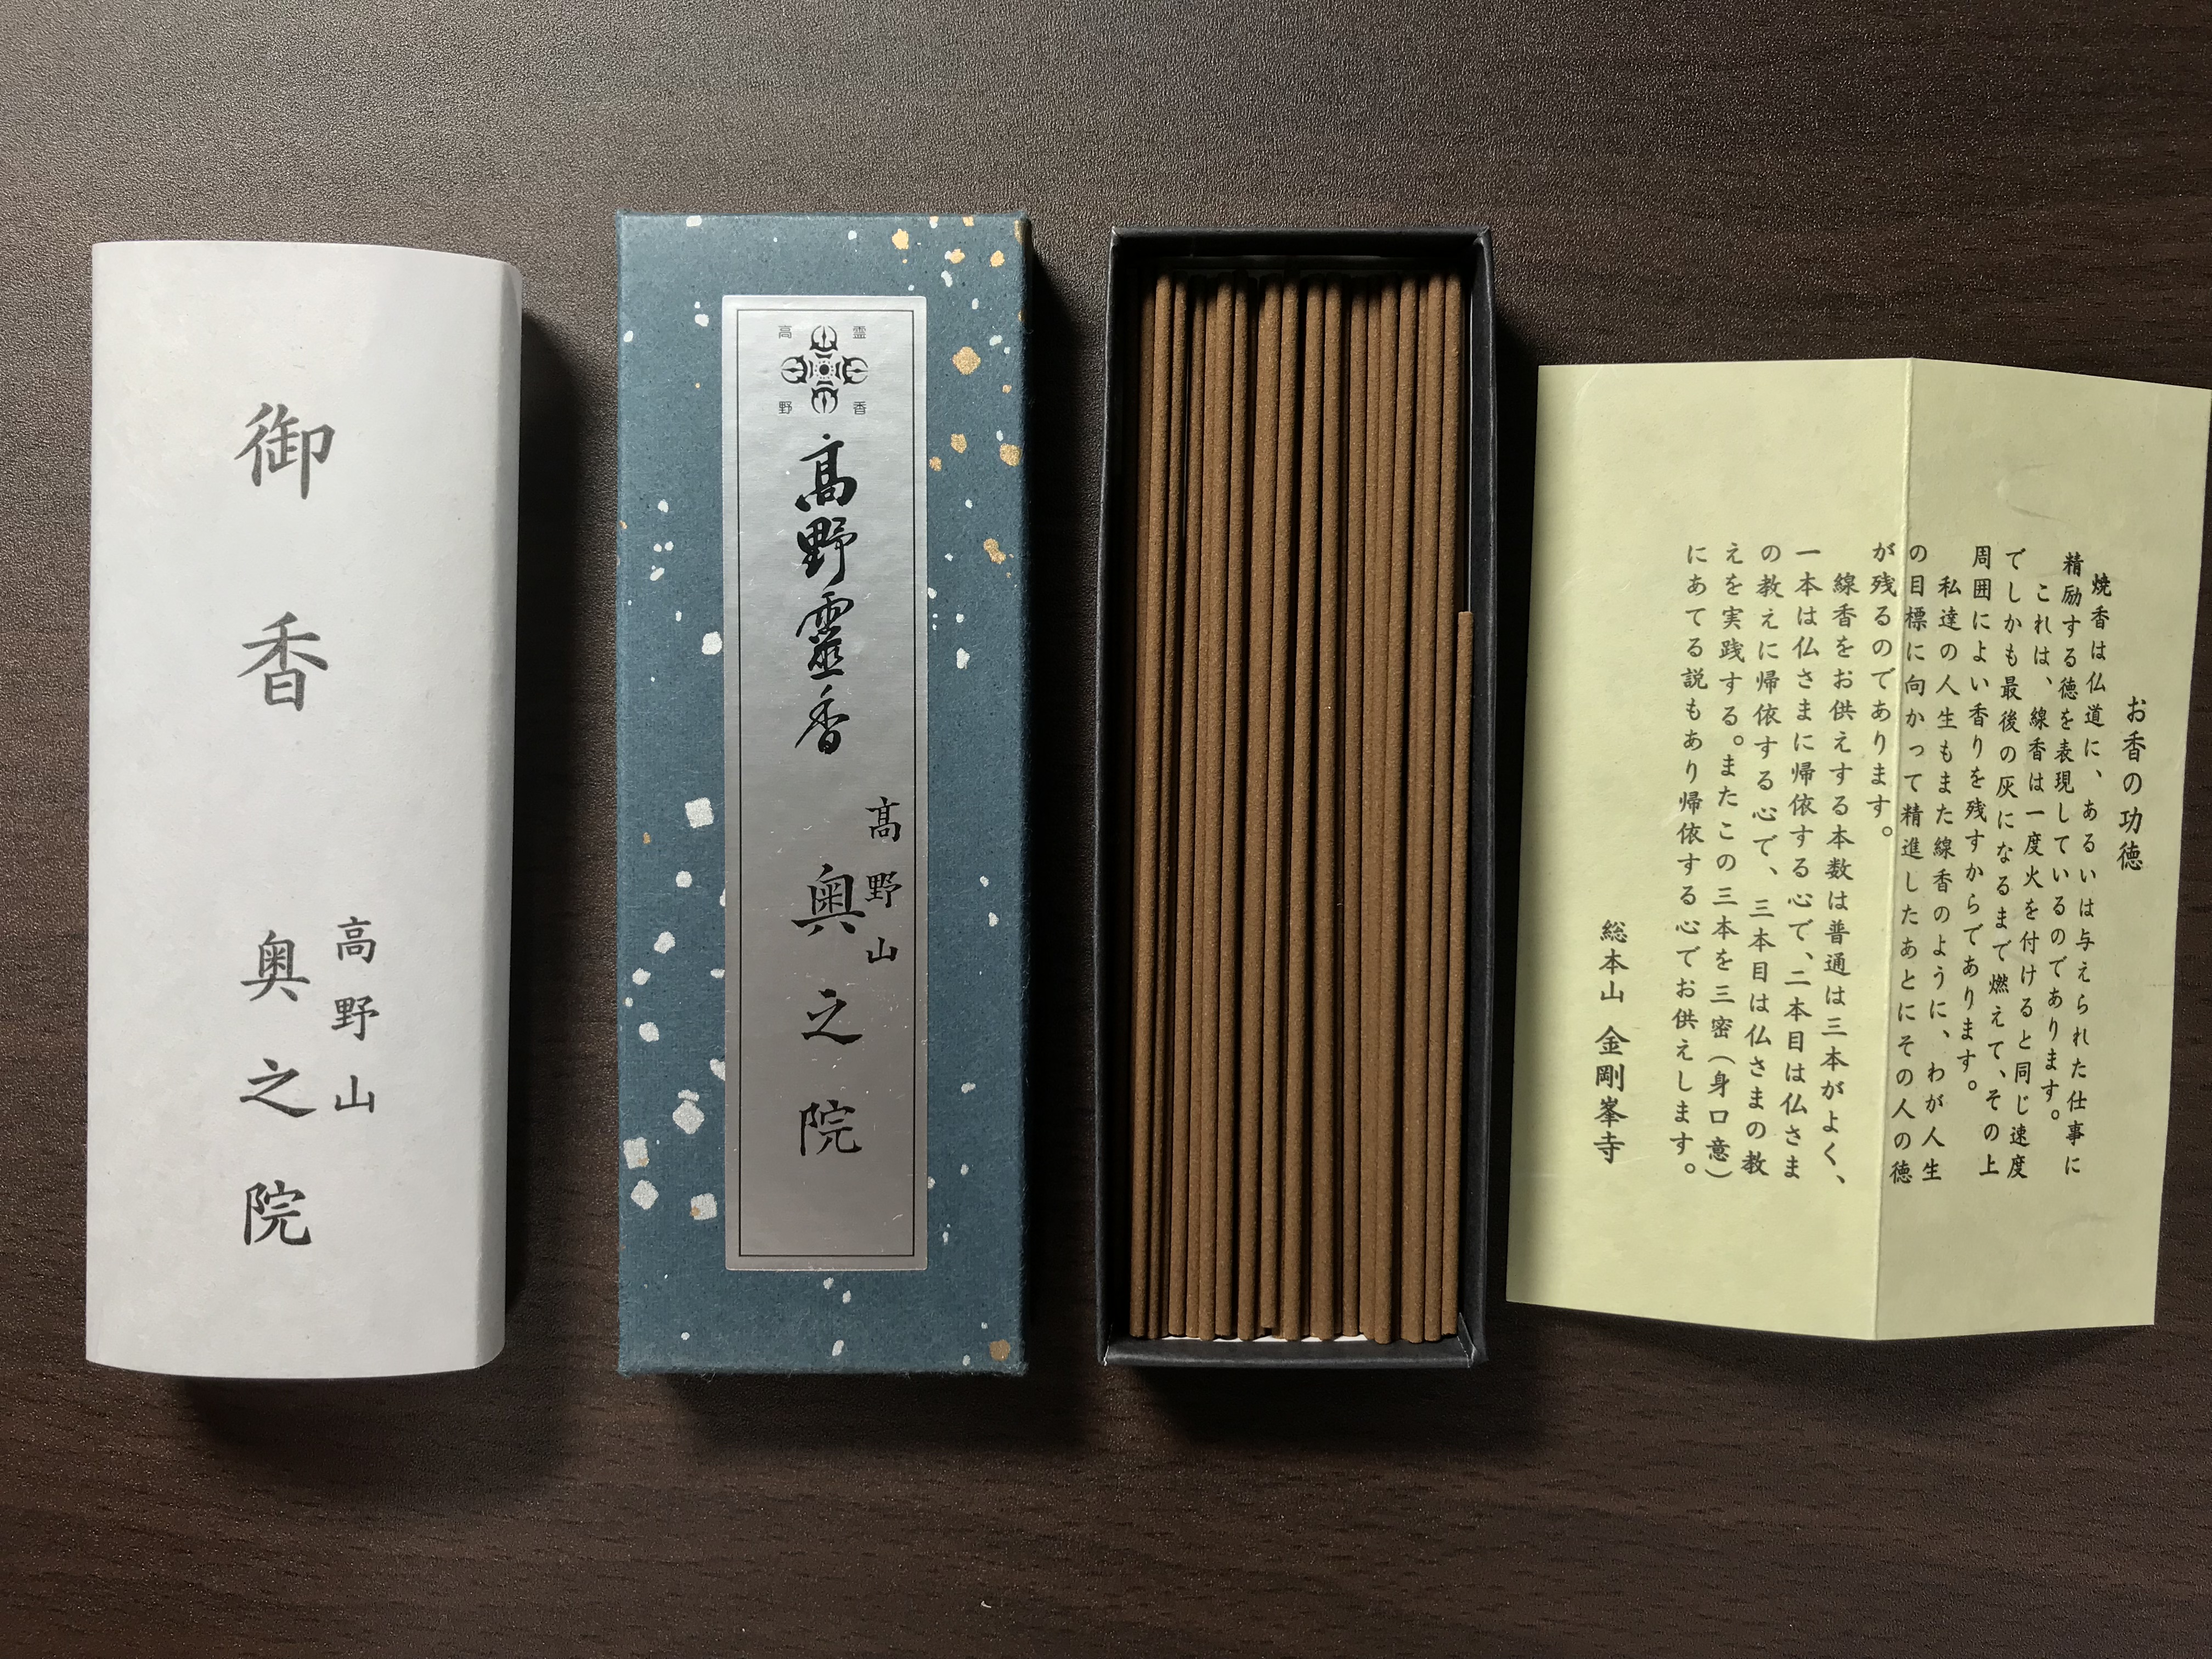 御香
高野山
奥之院
高 霊
野 香
髙野靈香
髙野山
奥之院
お香の功徳
焼香は仏道に、あるいは与えられた仕事に
精励する徳を表現しているのであります。
これは、線香は一度火を付けると同じ速度
でしかも最後の灰になるまで燃えて、その上
周囲によい香りを残すからであります。
私達の人生もまた線香のように、わが人生
の目標に向かって精進したあとにその人の徳
が残るのであります。
線香をお供えする本数は普通は三本がよく、
一本は仏さまに帰依する心で、二本目は仏さま
の教えに帰依する心で、三本目は仏さまの教
えを実践する。またこの三本を三密(身口意)
にあてる説もあり帰依する心でお供えします。
総本山 金剛峯寺